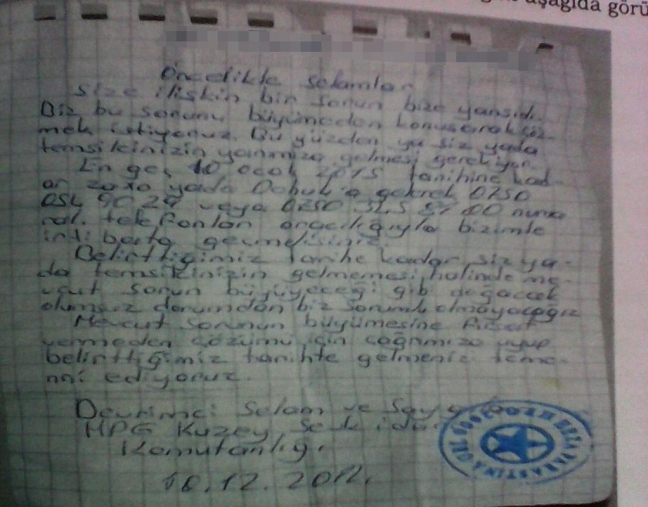 aşağıda görü
Öncelikle selamlar
size ilişkin bir sorun bize yansıdı.
Biz bu sorunu büyümeden konuşarak çöz-
mek istiyoruz. Bu yüzden ya siz yada
temsilcinizin yanımıza gelmesi gerekiyor.
En geç 10 ocak 2015 tarihine kad-
ar yada gelerek 0750
veya 0750 numa
ralı telefonlar aracılığıyla bizimle
irtibata geçmelisiniz.
Belirttiğimiz tarihe kadar siz ya-
da temsilcinizin gelmemesi halinde me-
vcut sorun büyüyeceği gibi doğacak
olumsuz durumdan biz sorumlu olmayacağız
Mevcut sorunun büyümesine fırsat
vermeden çözümü için çağrımıza uyup
belirttiğimiz tarihte gelmenizi teme-
nni ediyoruz.
Devrimci Selam ve Saygılar
HPG Kuzey
Komutanlığı
10.12.201